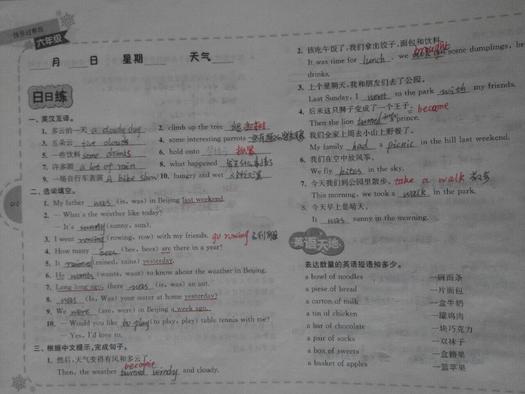 快乐过暑假
六年级
月 日 星期 天气
日日练
一、英汉互译。
1. 多云的一天 a cloudy day 2. climb up the tree
3. 五朵云 five clouds 4. some interesting parrots
5. 一些饮料 some drinks 6. hold onto 抓紧
7. 许多雨 a lot of rain 8. what happened
9. 一场自行车表演 A bike show 10. hungry and wet
二、选词填空。
1. My father was (is, was) in Beijing last weekend.
2. — What's the weather like today?
— It's sunny (sunny, sun).
3. I went rowing (rowing, row) with my friends. go rowing
4. How many bees (bee, bees) are there in a year?
5. It rained (rained, rains) yesterday.
6. He wants (wants, want) to know about the weather in Beijing.
7. Long long ago there was (is, was) an ant.
8. was (Is, Was) your sister at home yesterday?
9. We were (are, were) in Beijing a week ago.
10. — Would you like to play (to play, play) table tennis with me?
— Yes, I'd love to.
三、根据中文提示,完成句子。
1. 然后,天气变得有风和多云了。
become
Then, the weather turned windy and cloudy.
2. 该吃午饭了,我们拿出饺子,面包和饮料。
brought
It was time for lunch, we some dumplings,
drinks.
3. 上个星期天,我和朋友们去了公园。
Last Sunday, I went to the park with my friends.
4. 后来这只狮子变成了一个王子。 become
Then the lion turned prince.
5. 我们全家上周去小山上野餐了。
My family had a picnic in the hill last weekend.
6. 我们在空中放风筝。
We fly kites in the sky.
7. 今天我们到公园里散步。 take a walk 散步
This morning, we took a walk in the park.
8. 今天早上是晴天。
It was sunny in the morning.
英语天地
表达数量的英语短语知多少。
a bowl of noodles 一碗面条
a piece of bread 一片面包
a carton of milk 一盒牛奶
a tin of chicken 一罐鸡肉
a bar of chocolate 一块巧克力
a pair of socks 一双袜子
a box of sweets 一盒糖果
a basket of apples 一篮苹果